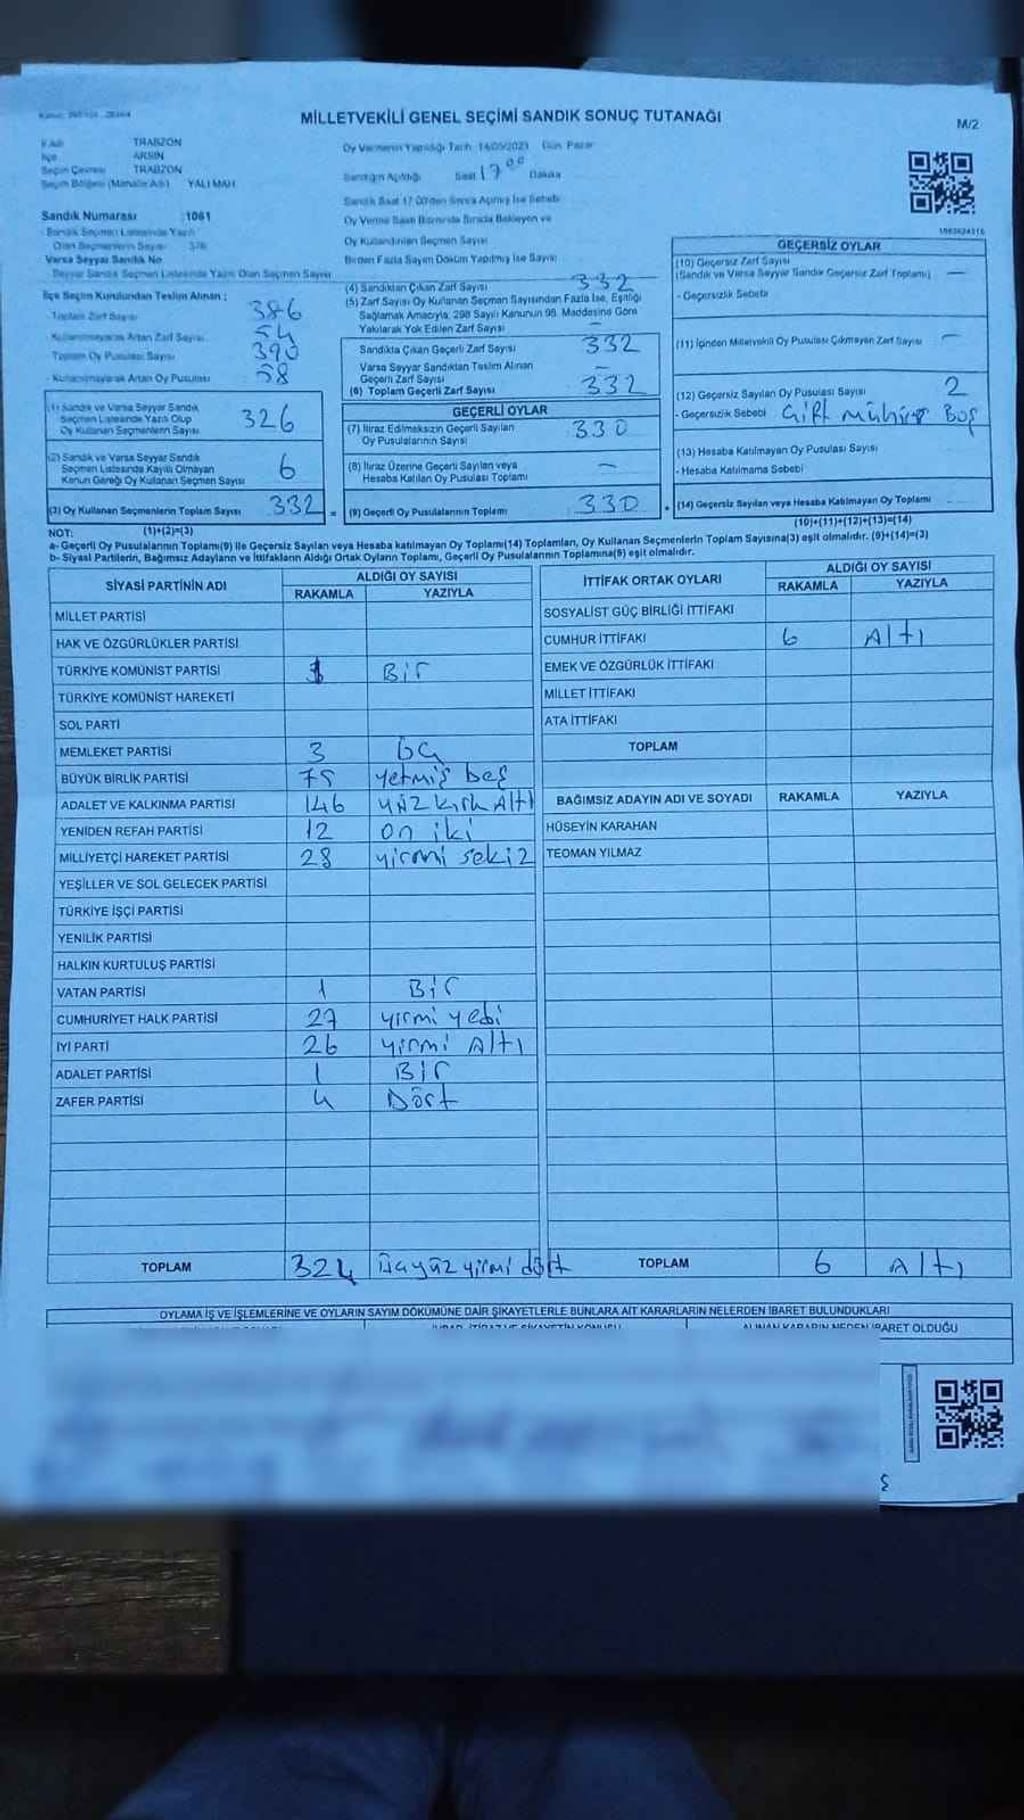 MİLLETVEKİLİ GENEL SEÇİMİ SANDIK SONUÇ TUTANAĞI
M/2
TRABZON
ARSİN
Seçim Çevresi TRABZON
Seçim Bölgesi (Mahalle Adı) YALI MAH
Oy Vermenin Yapıldığı Tarih 14/05/2023 Gün Pazar
Sandığın Açıldığı Saat 17 00 Dakika
Sandık Saat 17.00'den Sonra Açılmış İse Sebebi
Oy Verme Saati Bitiminde Sırada Bekleyen ve
Oy Kullandırılan Seçmen Sayısı
Birden Fazla Sayım Döküm Yapılmış İse Sayısı
Sandık Numarası :1061
Sandık Seçmen Listesinde Yazılı
Olan Seçmenlerin Sayısı 376
Varsa Seyyar Sandık No
Seyyar Sandık Seçmen Listesinde Yazılı Olan Seçmen Sayısı
İlçe Seçim Kurulundan Teslim Alınan :
- Toplam Zarf Sayısı 386
- Kullanılmayarak Artan Zarf Sayısı 54
- Toplam Oy Pusulası Sayısı 390
- Kullanılmayarak Artan Oy Pusulası 58
(1) Sandık ve Varsa Seyyar Sandık
Seçmen Listesinde Yazılı Olup
Oy Kullanan Seçmenlerin Sayısı 326
(2) Sandık ve Varsa Seyyar Sandık
Seçmen Listesinde Kayıtlı Olmayan
Kanun Gereği Oy Kullanan Seçmen Sayısı 6
(3) Oy Kullanan Seçmenlerin Toplam Sayısı 332 =
(1)+(2)=(3)
(4) Sandıktan Çıkan Zarf Sayısı 332
(5) Zarf Sayısı Oy Kullanan Seçmen Sayısından Fazla İse, Eşitliği
Sağlamak Amacıyla, 298 Sayılı Kanunun 98. Maddesine Göre
Yakılarak Yok Edilen Zarf Sayısı –
Sandıkta Çıkan Geçerli Zarf Sayısı 332
Varsa Seyyar Sandıktan Teslim Alınan
Geçerli Zarf Sayısı –
(6) Toplam Geçerli Zarf Sayısı 332
GEÇERLİ OYLAR
(7) İtiraz Edilmeksizin Geçerli Sayılan
Oy Pusulalarının Sayısı 330
(8) İtiraz Üzerine Geçerli Sayılan veya
Hesaba Katılan Oy Pusulası Toplamı –
(9) Geçerli Oy Pusulalarının Toplamı 330 +
1063624316
GEÇERSİZ OYLAR
(10) Geçersiz Zarf Sayısı
(Sandık ve Varsa Seyyar Sandık Geçersiz Zarf Toplamı) –
- Geçersizlik Sebebi
(11) İçinden Milletvekili Oy Pusulası Çıkmayan Zarf Sayısı –
(12) Geçersiz Sayılan Oy Pusulası Sayısı 2
- Geçersizlik Sebebi Çift mühür Boş
(13) Hesaba Katılmayan Oy Pusulası Sayısı
- Hesaba Katılmama Sebebi
(14) Geçersiz Sayılan veya Hesaba Katılmayan Oy Toplamı
(10)+(11)+(12)+(13)=(14)
NOT:
a- Geçerli Oy Pusulalarının Toplamı(9) ile Geçersiz Sayılan veya Hesaba katılmayan Oy Toplamı(14) Toplamları, Oy Kullanan Seçmenlerin Toplam Sayısına(3) eşit olmalıdır. (9)+(14)=(3)
b- Siyasi Partilerin, Bağımsız Adayların ve İttifakların Aldığı Ortak Oyların Toplamı, Geçerli Oy Pusulalarının Toplamına(9) eşit olmalıdır.
SİYASİ PARTİNİN ADI
ALDIĞI OY SAYISI
RAKAMLA YAZIYLA
MİLLET PARTİSİ
HAK VE ÖZGÜRLÜKLER PARTİSİ
TÜRKİYE KOMÜNİST PARTİSİ 1 Bir
TÜRKİYE KOMÜNİST HAREKETİ
SOL PARTİ
MEMLEKET PARTİSİ 3 üç
BÜYÜK BİRLİK PARTİSİ 75 yetmiş beş
ADALET VE KALKINMA PARTİSİ 146 yüz kırk Altı
YENİDEN REFAH PARTİSİ 12 on iki
MİLLİYETÇİ HAREKET PARTİSİ 28 yirmi sekiz
YEŞİLLER VE SOL GELECEK PARTİSİ
TÜRKİYE İŞÇİ PARTİSİ
YENİLİK PARTİSİ
HALKIN KURTULUŞ PARTİSİ
VATAN PARTİSİ 1 Bir
CUMHURİYET HALK PARTİSİ 27 yirmi yedi
İYİ PARTİ 26 yirmi Altı
ADALET PARTİSİ 1 Bir
ZAFER PARTİSİ 4 Dört
TOPLAM 324 üçyüz yirmi dört
İTTİFAK ORTAK OYLARI
ALDIĞI OY SAYISI
RAKAMLA YAZIYLA
SOSYALİST GÜÇ BİRLİĞİ İTTİFAKI
CUMHUR İTTİFAKI 6 Altı
EMEK VE ÖZGÜRLÜK İTTİFAKI
MİLLET İTTİFAKI
ATA İTTİFAKI
TOPLAM
BAĞIMSIZ ADAYIN ADI VE SOYADI RAKAMLA YAZIYLA
HÜSEYİN KARAHAN
TEOMAN YILMAZ
TOPLAM 6 Altı
OYLAMA İŞ VE İŞLEMLERİNE VE OYLARIN SAYIM DÖKÜMÜNE DAİR ŞİKAYETLERLE BUNLARA AİT KARARLARIN NELERDEN İBARET BULUNDUKLARI
ALINAN KARARIN NEDEN İBARET OLDUĞU